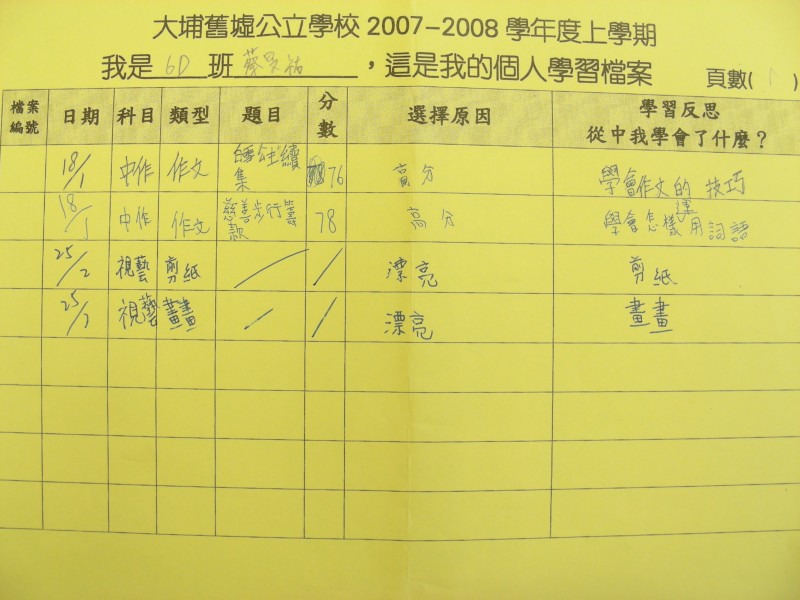 大埔舊墟公立學校 2007-2008 學年度上學期
我是 6D 班 蔡昊祐 ，這是我的個人學習檔案 頁數( 1 )
檔案編號 日期 科目 類型 題目 分數 選擇原因 學習反思
從中我學會了什麼？
18/1 中作 作文 公主續集 76 高分 學會作文的技巧
18/1 中作 作文 慈善步行籌款 78 高分 學會怎樣運用詞語
25/2 視藝 剪紙 / / 漂亮 剪紙
25/2 視藝 畫畫 / / 漂亮 畫畫